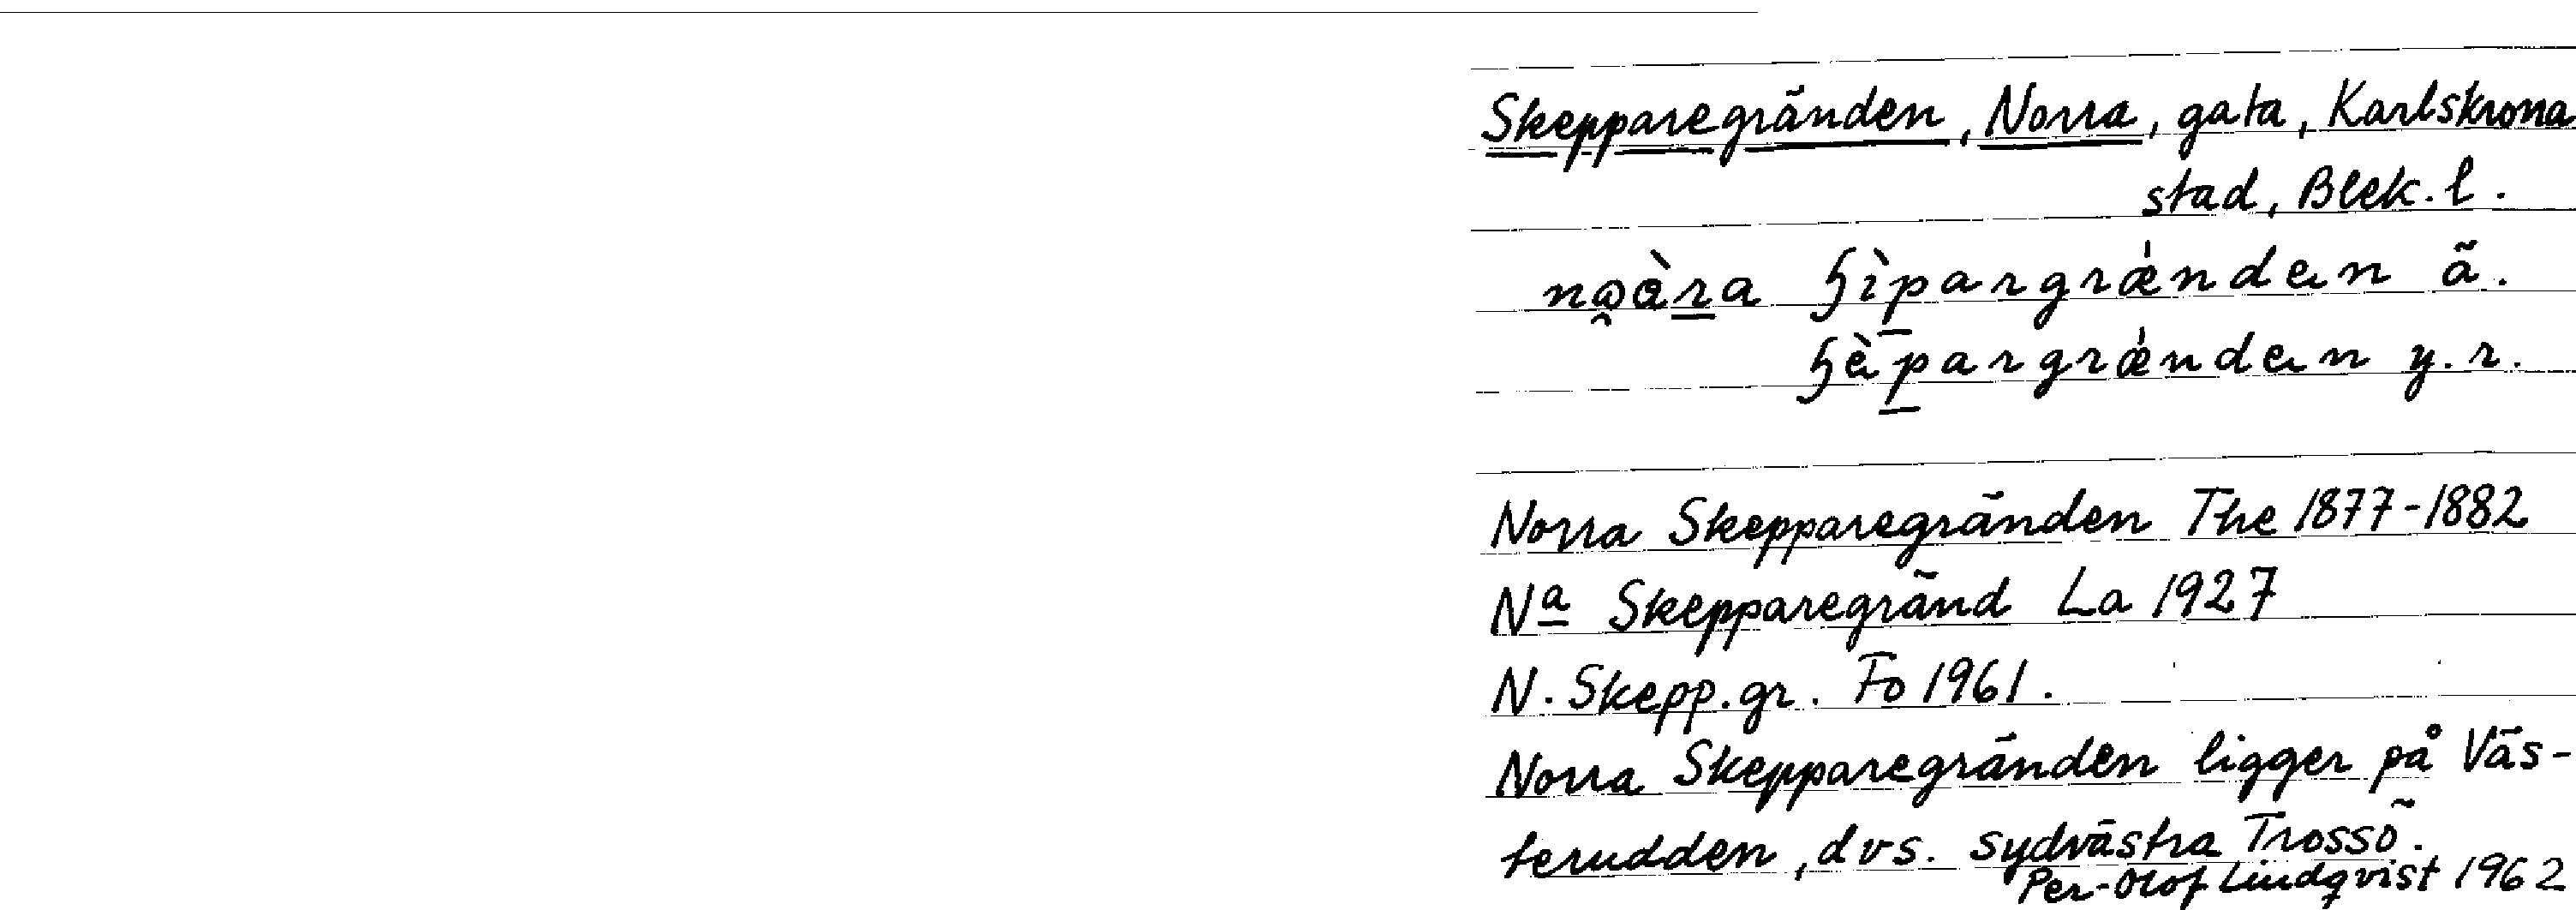 Skepparegränden, Norra, gata, Karlskrona
stad, Blek. l.
ä.
y. r.
Norra Skepparegränden The 1877-1882
Nª Skepparegränd La 1927
N. Skepp. gr. Fo 1961.
Norra Skepparegränden ligger på Väs-
terudden, dvs. sydvästra Trossö.
Per-Olof Lindqvist 1962